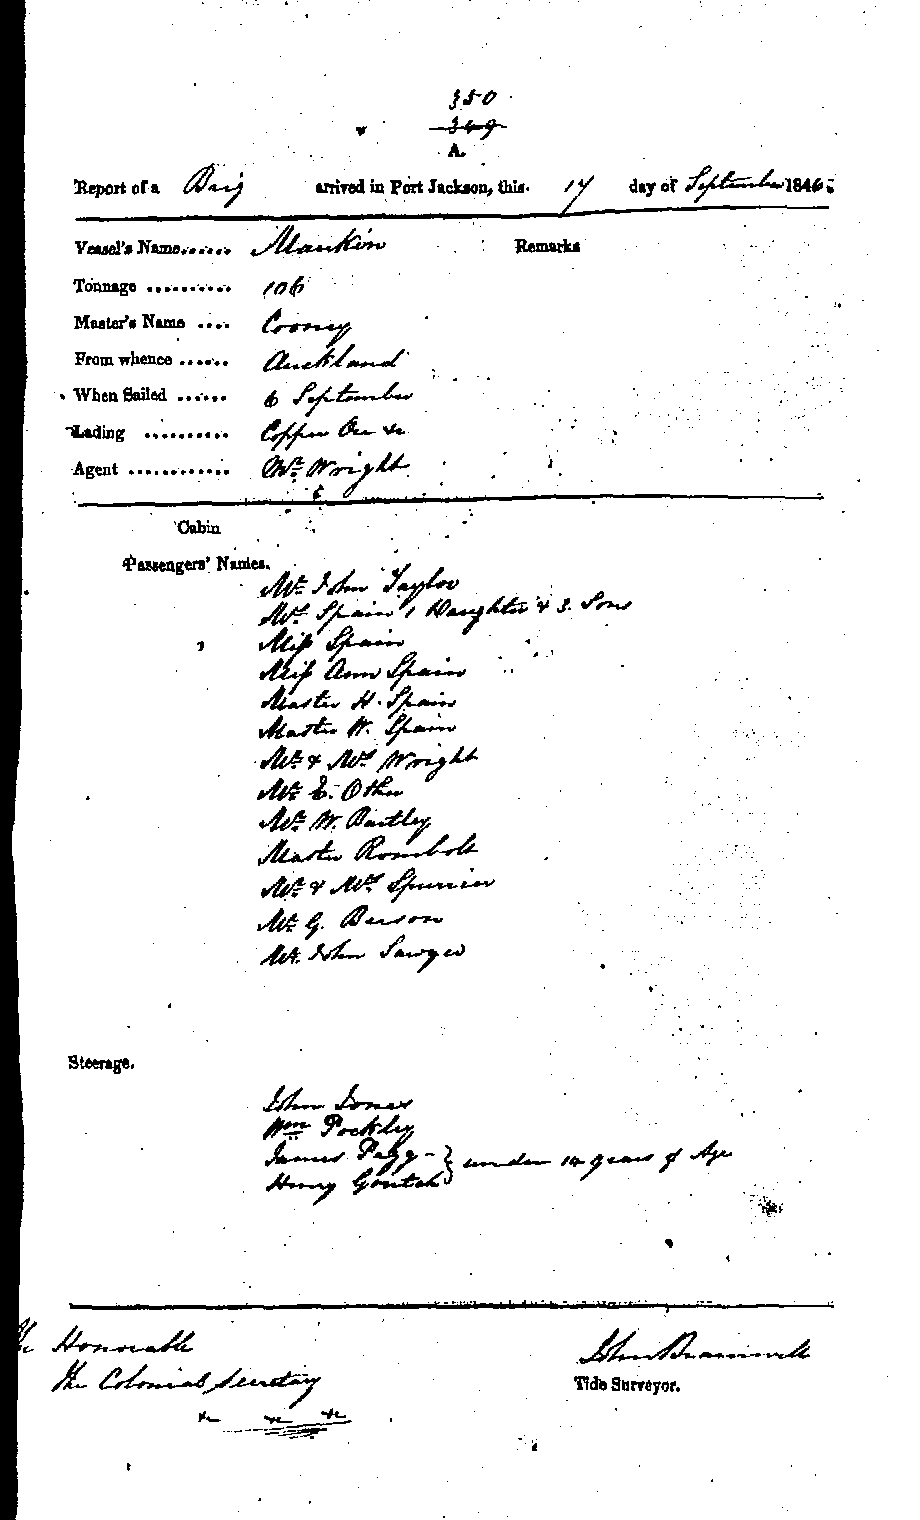 350
349
A.
Report of a Brig arrived in Port Jackson, this 17 day of September 1846.
Vessel's Name...... Maukin Remarks
Tonnage .......... 106
Master's Name .... Cooney
From whence ...... Auckland
When Sailed ...... 6 September
Lading .......... Copper Ore &c
Agent ............ Mr. Wright
Cabin
Passengers' Names.
Mr. John Taylor
Mrs. Spain 1 Daughter & 3 Sons
Miss Spain
Miss Ann Spain
Master H. Spain
Master W. Spain
Mr. & Mrs. Wright
Mr. E.
Mr. W. Bartley
Master Rombolt
Mr. & Mrs. Spurrier
Mr. G.
Mr. John Sawyer
Steerage.
John Jones
Wm Pockley
James
Henry
} under 14 years of Age
The Honorable
The Colonial Secretary
&c &c &c
John Bramwell
Tide Surveyor.